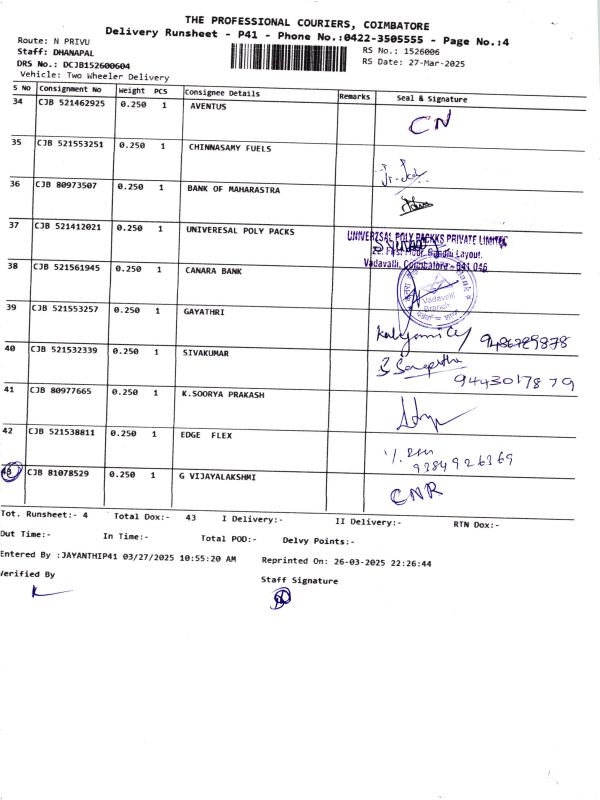 THE PROFESSIONAL COURIERS, COIMBATORE
Delivery Runsheet - P41 - Phone No.:0422-3505555 - Page No.:4
Route: N PRIVU
RS No.: 1526006
Staff: DHANAPAL
RS Date: 27-Mar-2025
DRS No.: DCJB152600604
Vehicle: Two Wheeler Delivery
S No Consignment No Weight PCS Consignee Details Remarks Seal & Signature
34 CJB 521462925 0.250 1 AVENTUS CN
35 CJB 521553251 0.250 1 CHINNASAMY FUELS
36 CJB 80973507 0.250 1 BANK OF MAHARASTRA
37 CJB 521412021 0.250 1 UNIVERESAL POLY PACKS
UNIVERZSAL POLY PACKKS PRIVATE LIMITED
22, First Floor, Gandhi Layout,
Vadavalli, Coimbatore - 641 046
38 CJB 521561945 0.250 1 CANARA BANK
Vadavalli
Branch
39 CJB 521553257 0.250 1 GAYATHRI
40 CJB 521532339 0.250 1 SIVAKUMAR
9443017879
41 CJB 80977665 0.250 1 K.SOORYA PRAKASH
42 CJB 521538811 0.250 1 EDGE FLEX
9384926369
43 CJB 81078529 0.250 1 G VIJAYALAKSHMI CNR
Tot. Runsheet:- 4 Total Dox:- 43 I Delivery:- II Delivery:- RTN Dox:-
Out Time:- In Time:- Total POD:- Delvy Points:-
Entered By :JAYANTHIP41 03/27/2025 10:55:20 AM Reprinted On: 26-03-2025 22:26:44
Verified By
Staff Signature